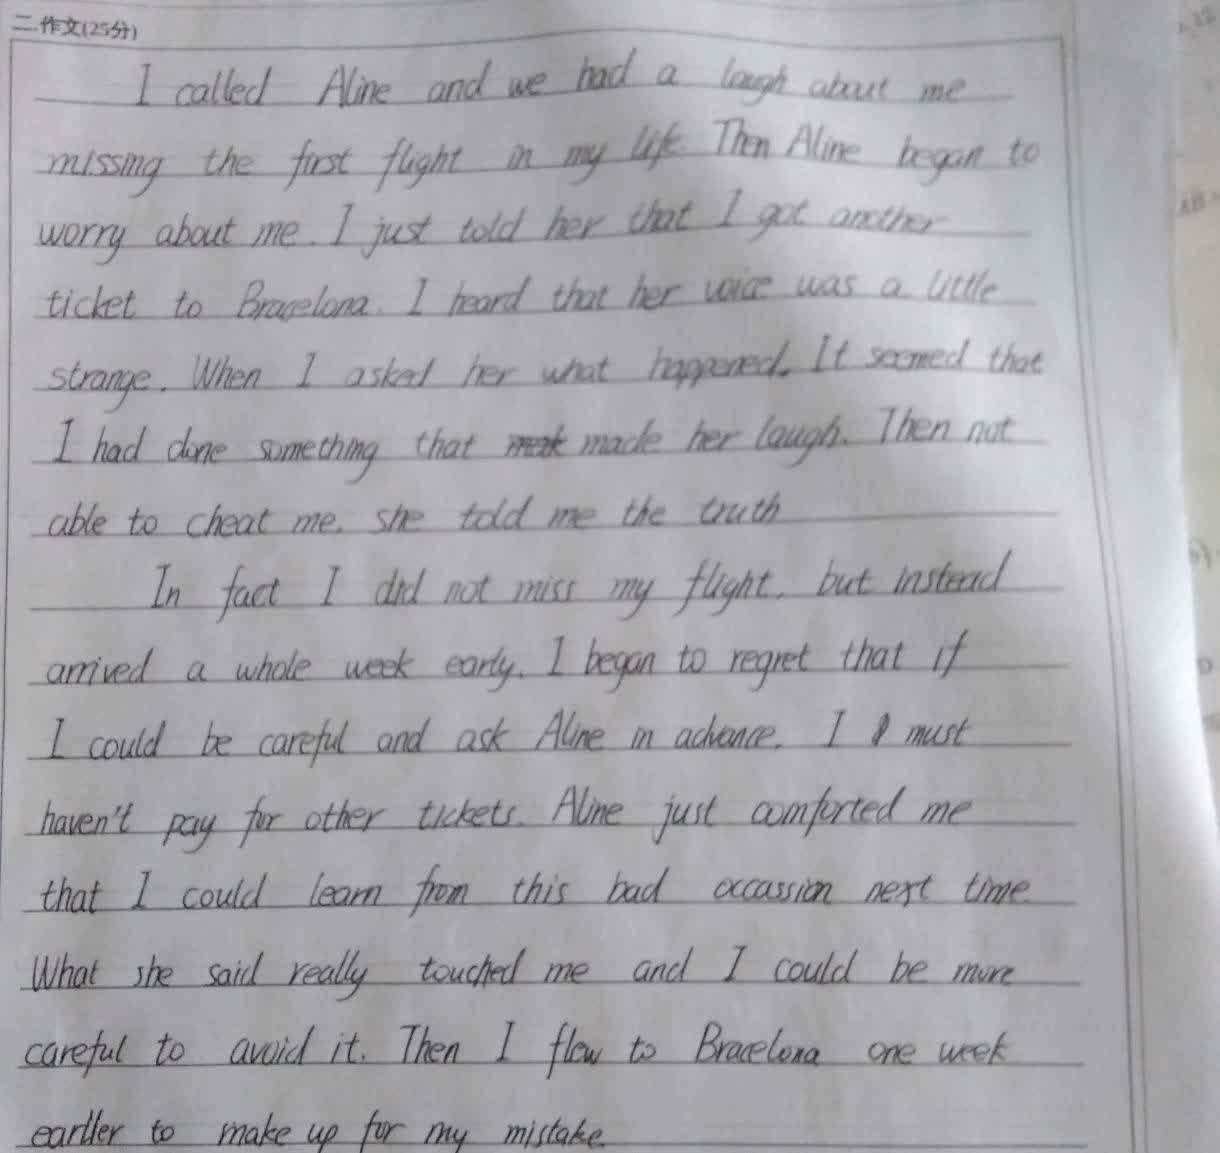 二.作文(25分)
I called Aline and we had a laugh about me
missing the first flight in my life. Then Aline began to
worry about me. I just told her that I got another
ticket to Bracelona. I heard that her voice was a little
strange. When I asked her what happened. It seemed that
I had done something that made her laugh. Then not
able to cheat me. she told me the truth
In fact I did not miss my flight. but instead
arrived a whole week early. I began to regret that if
I could be careful and ask Aline in advance. I must
haven't pay for other tickets. Aline just comforted me
that I could learn from this bad occassion next time.
What she said really touched me and I could be more
careful to avoid it. Then I flew to Bracelona one week
eariler to make up for my mistake.